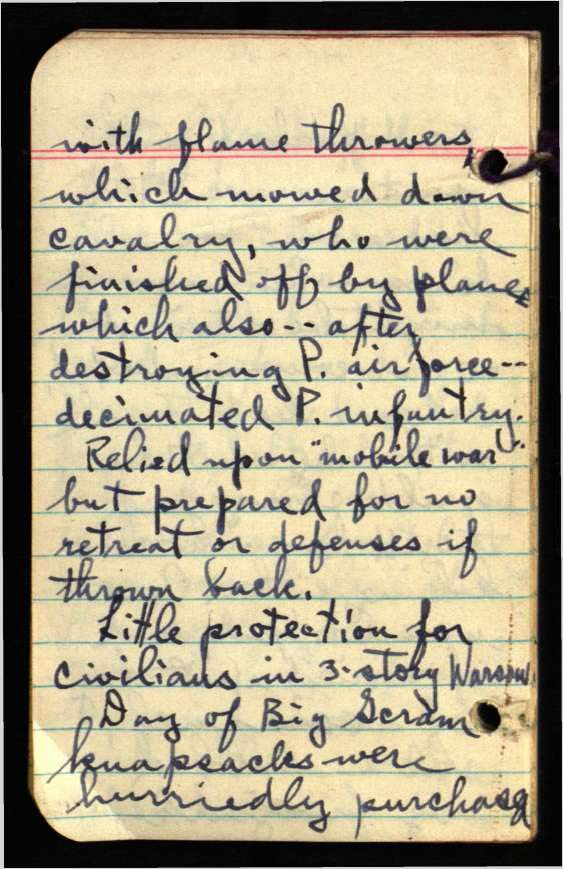 with flame throwers,
which mowed down
cavalry, who were
finished off by planes
which also -- after
destroying P. airforce --
decimated P. infantry.
Relied upon "mobile war"
but prepared for no
retreat or defenses if
thrown back.
Little protection for
civilians in 3-story Warsaw.
Day of Big Scram
knapsacks were
hurriedly purchased